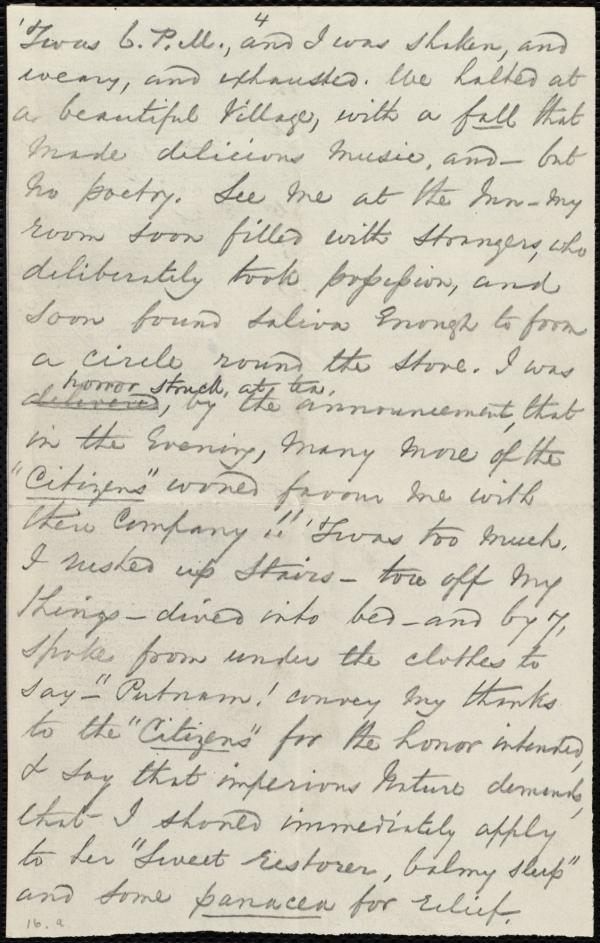 4
'Twas 6. P.M., and I was shaken, and
weary, and exhausted. We halted at
a beautiful Village, with a fall that
made delicious music, and – but
no poetry. See me at the Inn – my
room soon filled with strangers, who
deliberately took possession, and
soon found saliva enough to form
a circle round the stove. I was
horror struck, at tea,
delivered, by the announcement, that
in the Evening, many more of the
"Citizens" would favour me with
their Company!! 'Twas too much.
I rushed up stairs – tore off my
things – dived into bed – and by 7,
spoke from under the clothes to
say – "Putnam! convey my thanks
to the "Citizens" for the honor intended,
& say that imperious Nature demands,
that I should immediately apply
to her "Sweet restorer, balmy sleep"
and some panacea for relief.
16. a